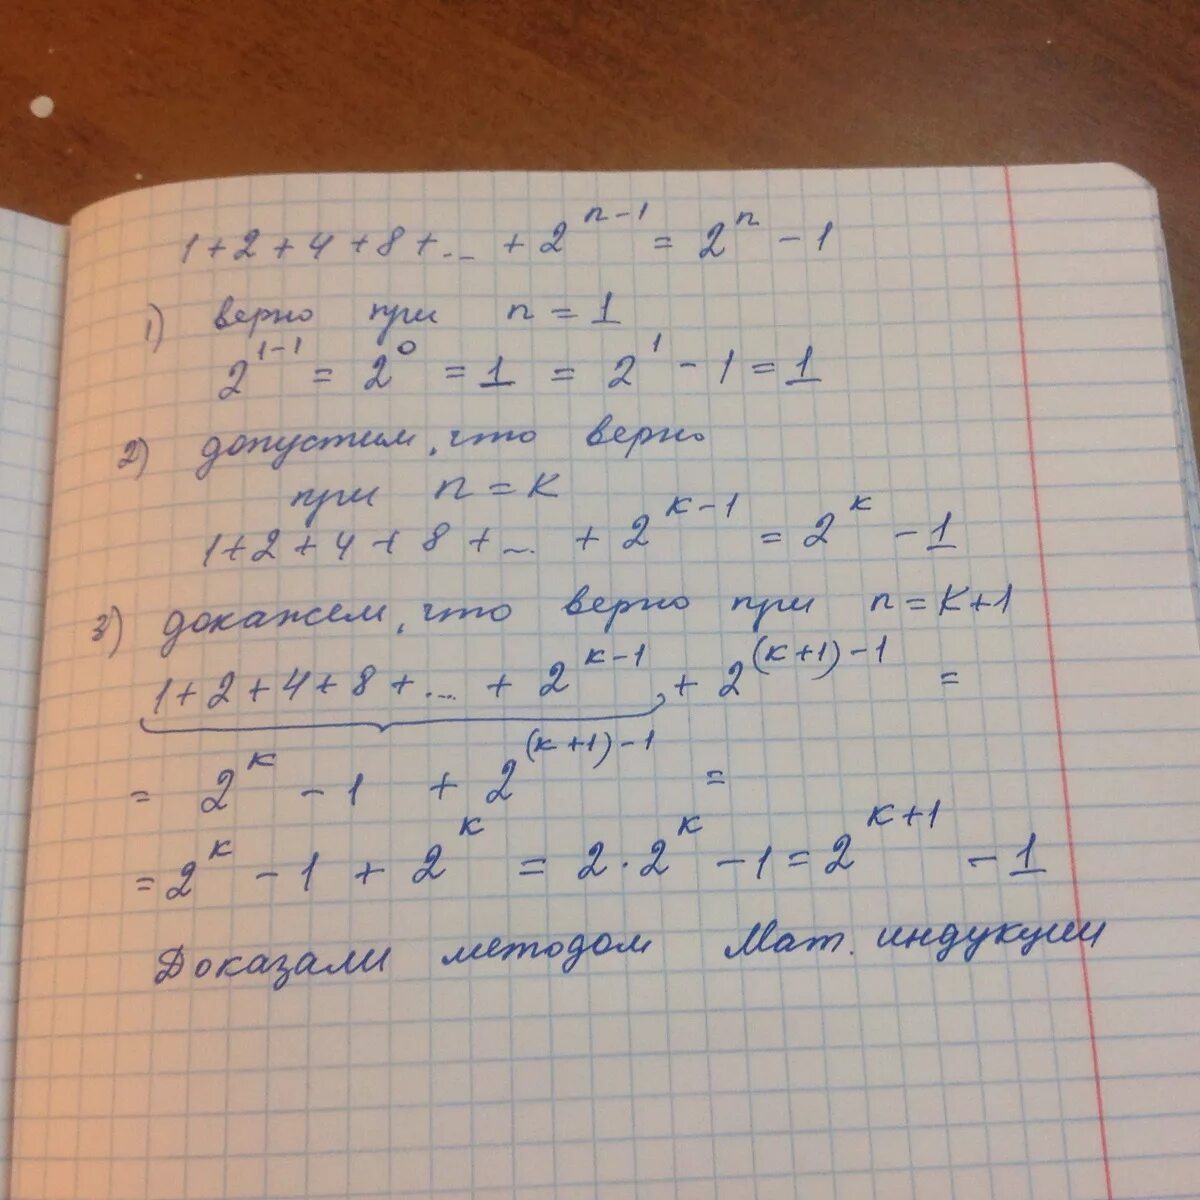 1+2+4+8+... + 2^{n-1} = 2^n - 1
1) верно при n = 1
2^{1-1} = 2^0 = 1 = 2^1 - 1 = 1
2) допустим, что верно
при n = k
1+2+4+8+... + 2^{k-1} = 2^k - 1
3) докажем, что верно при n = k+1
1+2+4+8+... + 2^{k-1} + 2^{(k+1)-1} =
= 2^k - 1 + 2^{(k+1)-1} =
= 2^k - 1 + 2^k = 2·2^k - 1 = 2^{k+1} - 1
Доказали методом Мат. индукции